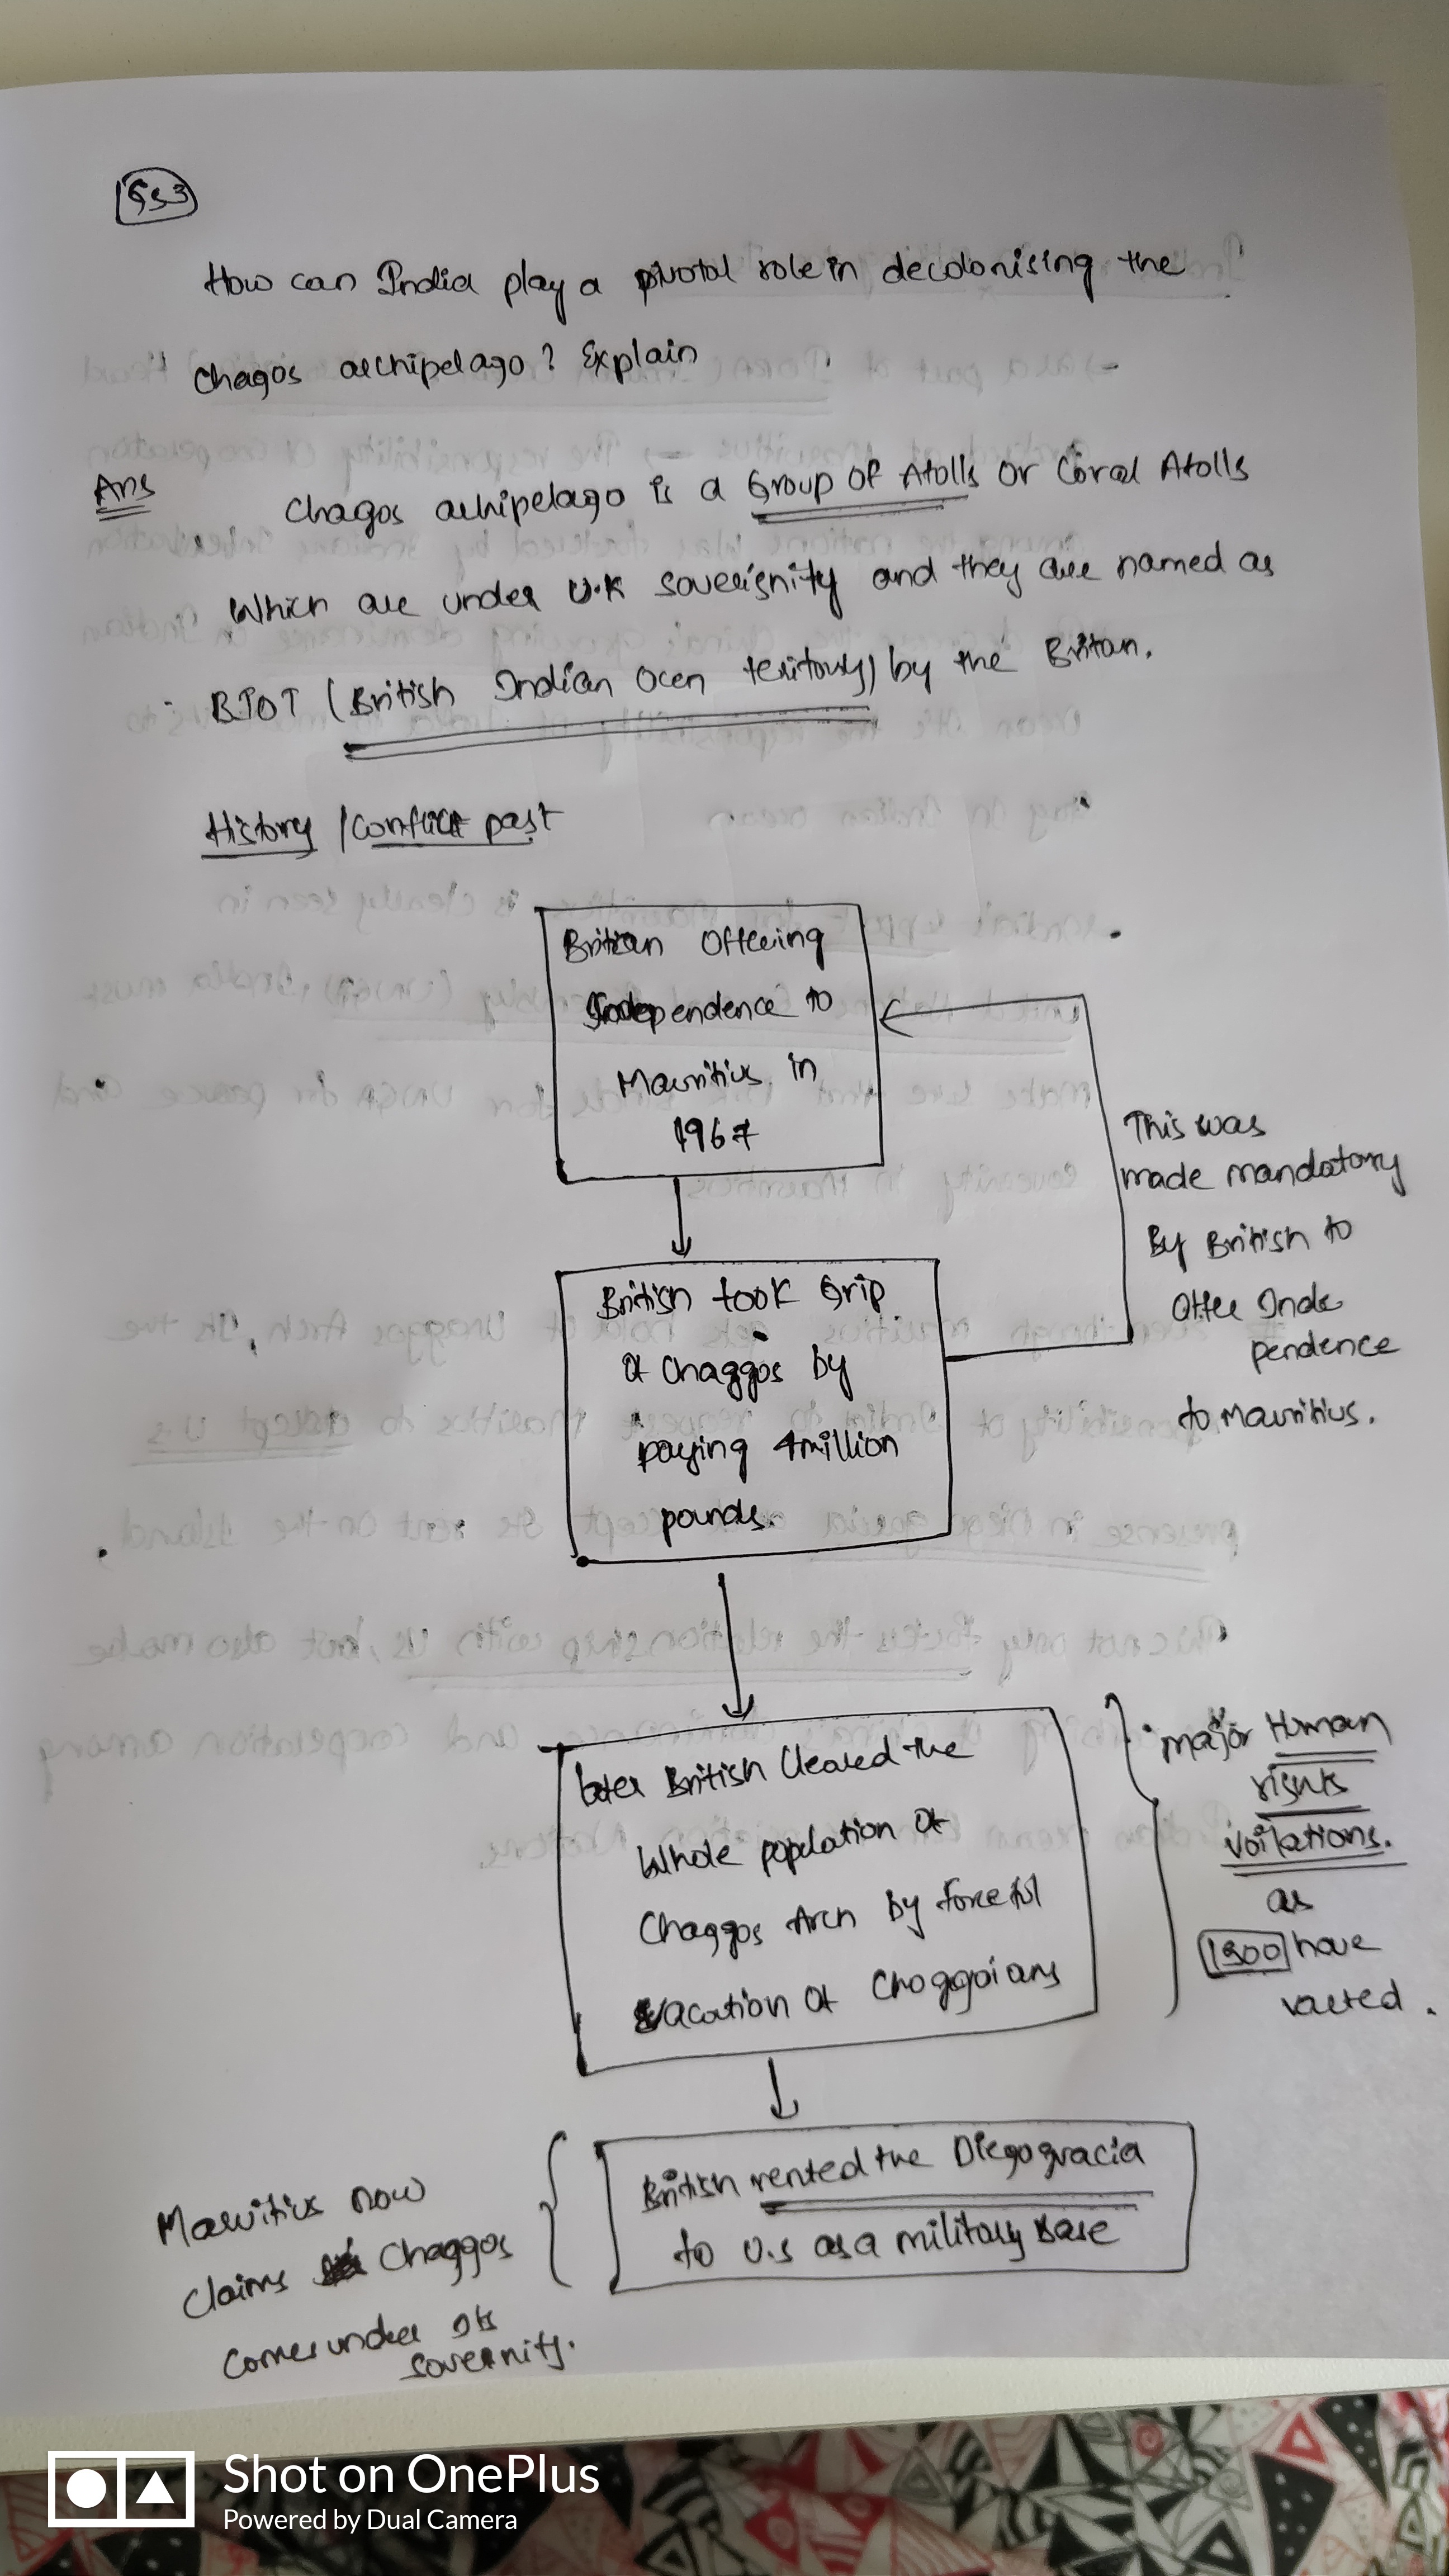 GS3
How can India play a pivotal role in decolonising the
chagos archipelago? Explain
Ans
Chagos archipelago is a Group Of Atolls or Coral Atolls
Which are under U.K soverignity and they are named as
BIOT (British Indian Ocen teritory) by the Britan.
History / conflict past
Britian Offering
Independence to
Mauritius in
1967
This was
made mandatory
By British to
Offer Inde
pendence
to Mauritius.
British took Grip
Of Chaggos by
paying 4million
pounds.
later British Cleared the
Whole population Of
Chaggos Arch by forceful
vacation Of Choggoians
major Human
rights
voilations.
as
1500 have
British rented the Diegogracia
to U.S as a military Base
Mauritius now
claims Chaggos
comes under its
sovernity.
Shot on OnePlus
Powered by Dual Camera